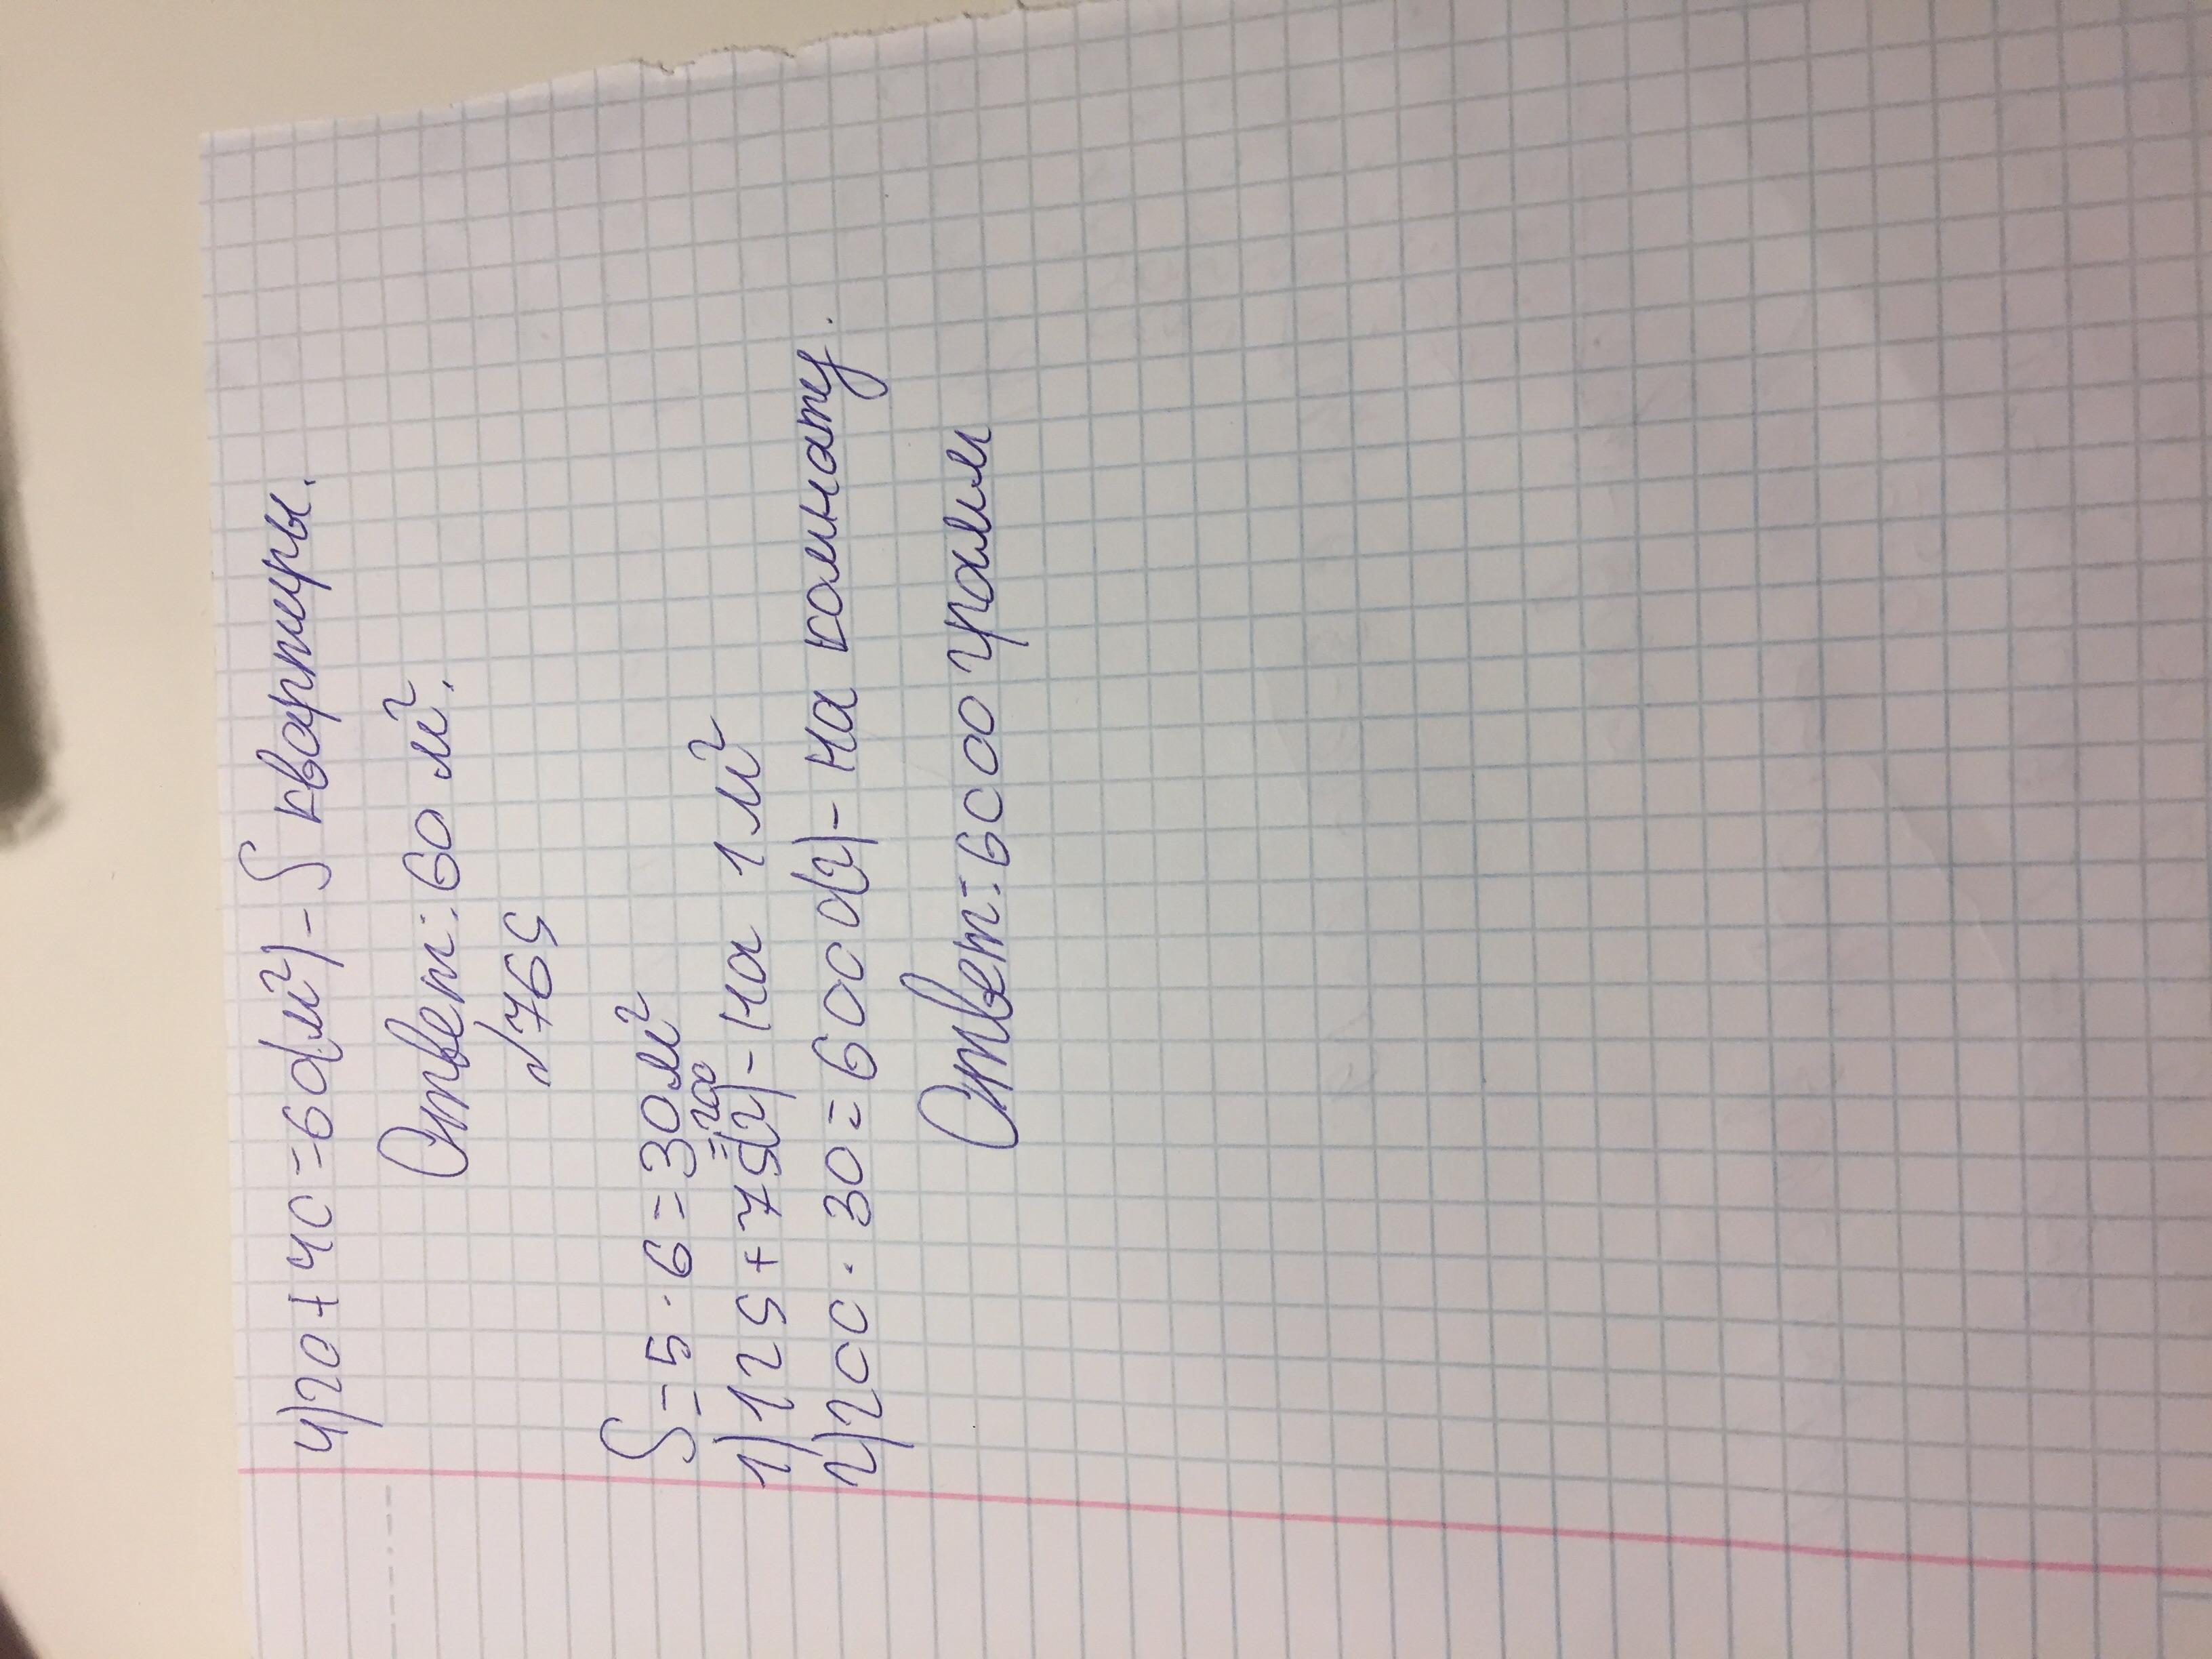 4) 20 + 40 = 60(м²) - S квартиры.
Ответ: 60 м².
№765
S = 5 · 6 = 30 м²
1) 125 + 75 = 200 (г) - на 1 м²
2) 200 · 30 = 6000(г) - на комнату.
Ответ: 6000 грамм